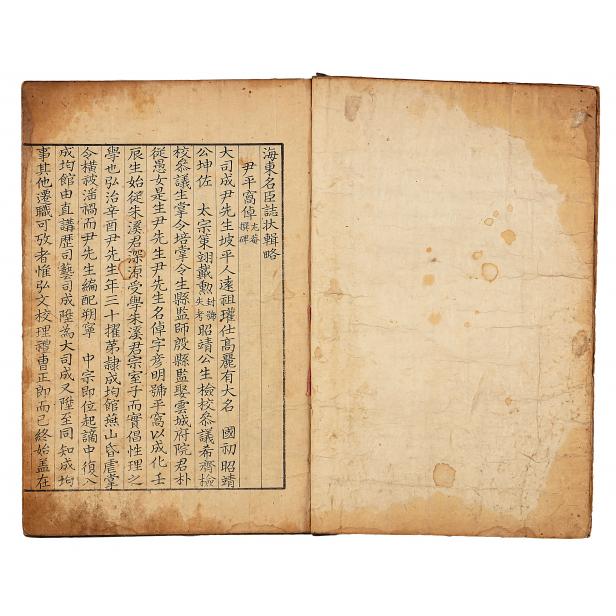 海東名臣誌狀輯略
尹平窩倬 尤菴撰碑
大司成尹先生坡平人遠祖瓘仕高麗有大名 國初昭靖
公坤佐 太宗策翊戴勲 封號失考 昭靖公生檢校參議希齊檢
校參議生掌令培掌令生縣監師殷縣監娶雲城府院君朴
從愚女是生尹先生尹先生名倬字彦明號平窩以成化壬
辰生始從朱溪君深源受學朱溪君宗室子而實倡性理之
學也弘治辛酉尹先生年三十擢苐隷成均館燕山昏虐掌
令橫被滛禍而尹先生編配朔寧 中宗即位起謫中復入
成均館由直講歷司藝司成陞為大司成又陞至同知成均
事其他遷職可攷者惟弘文校理禮曹正郎而已終始盖在